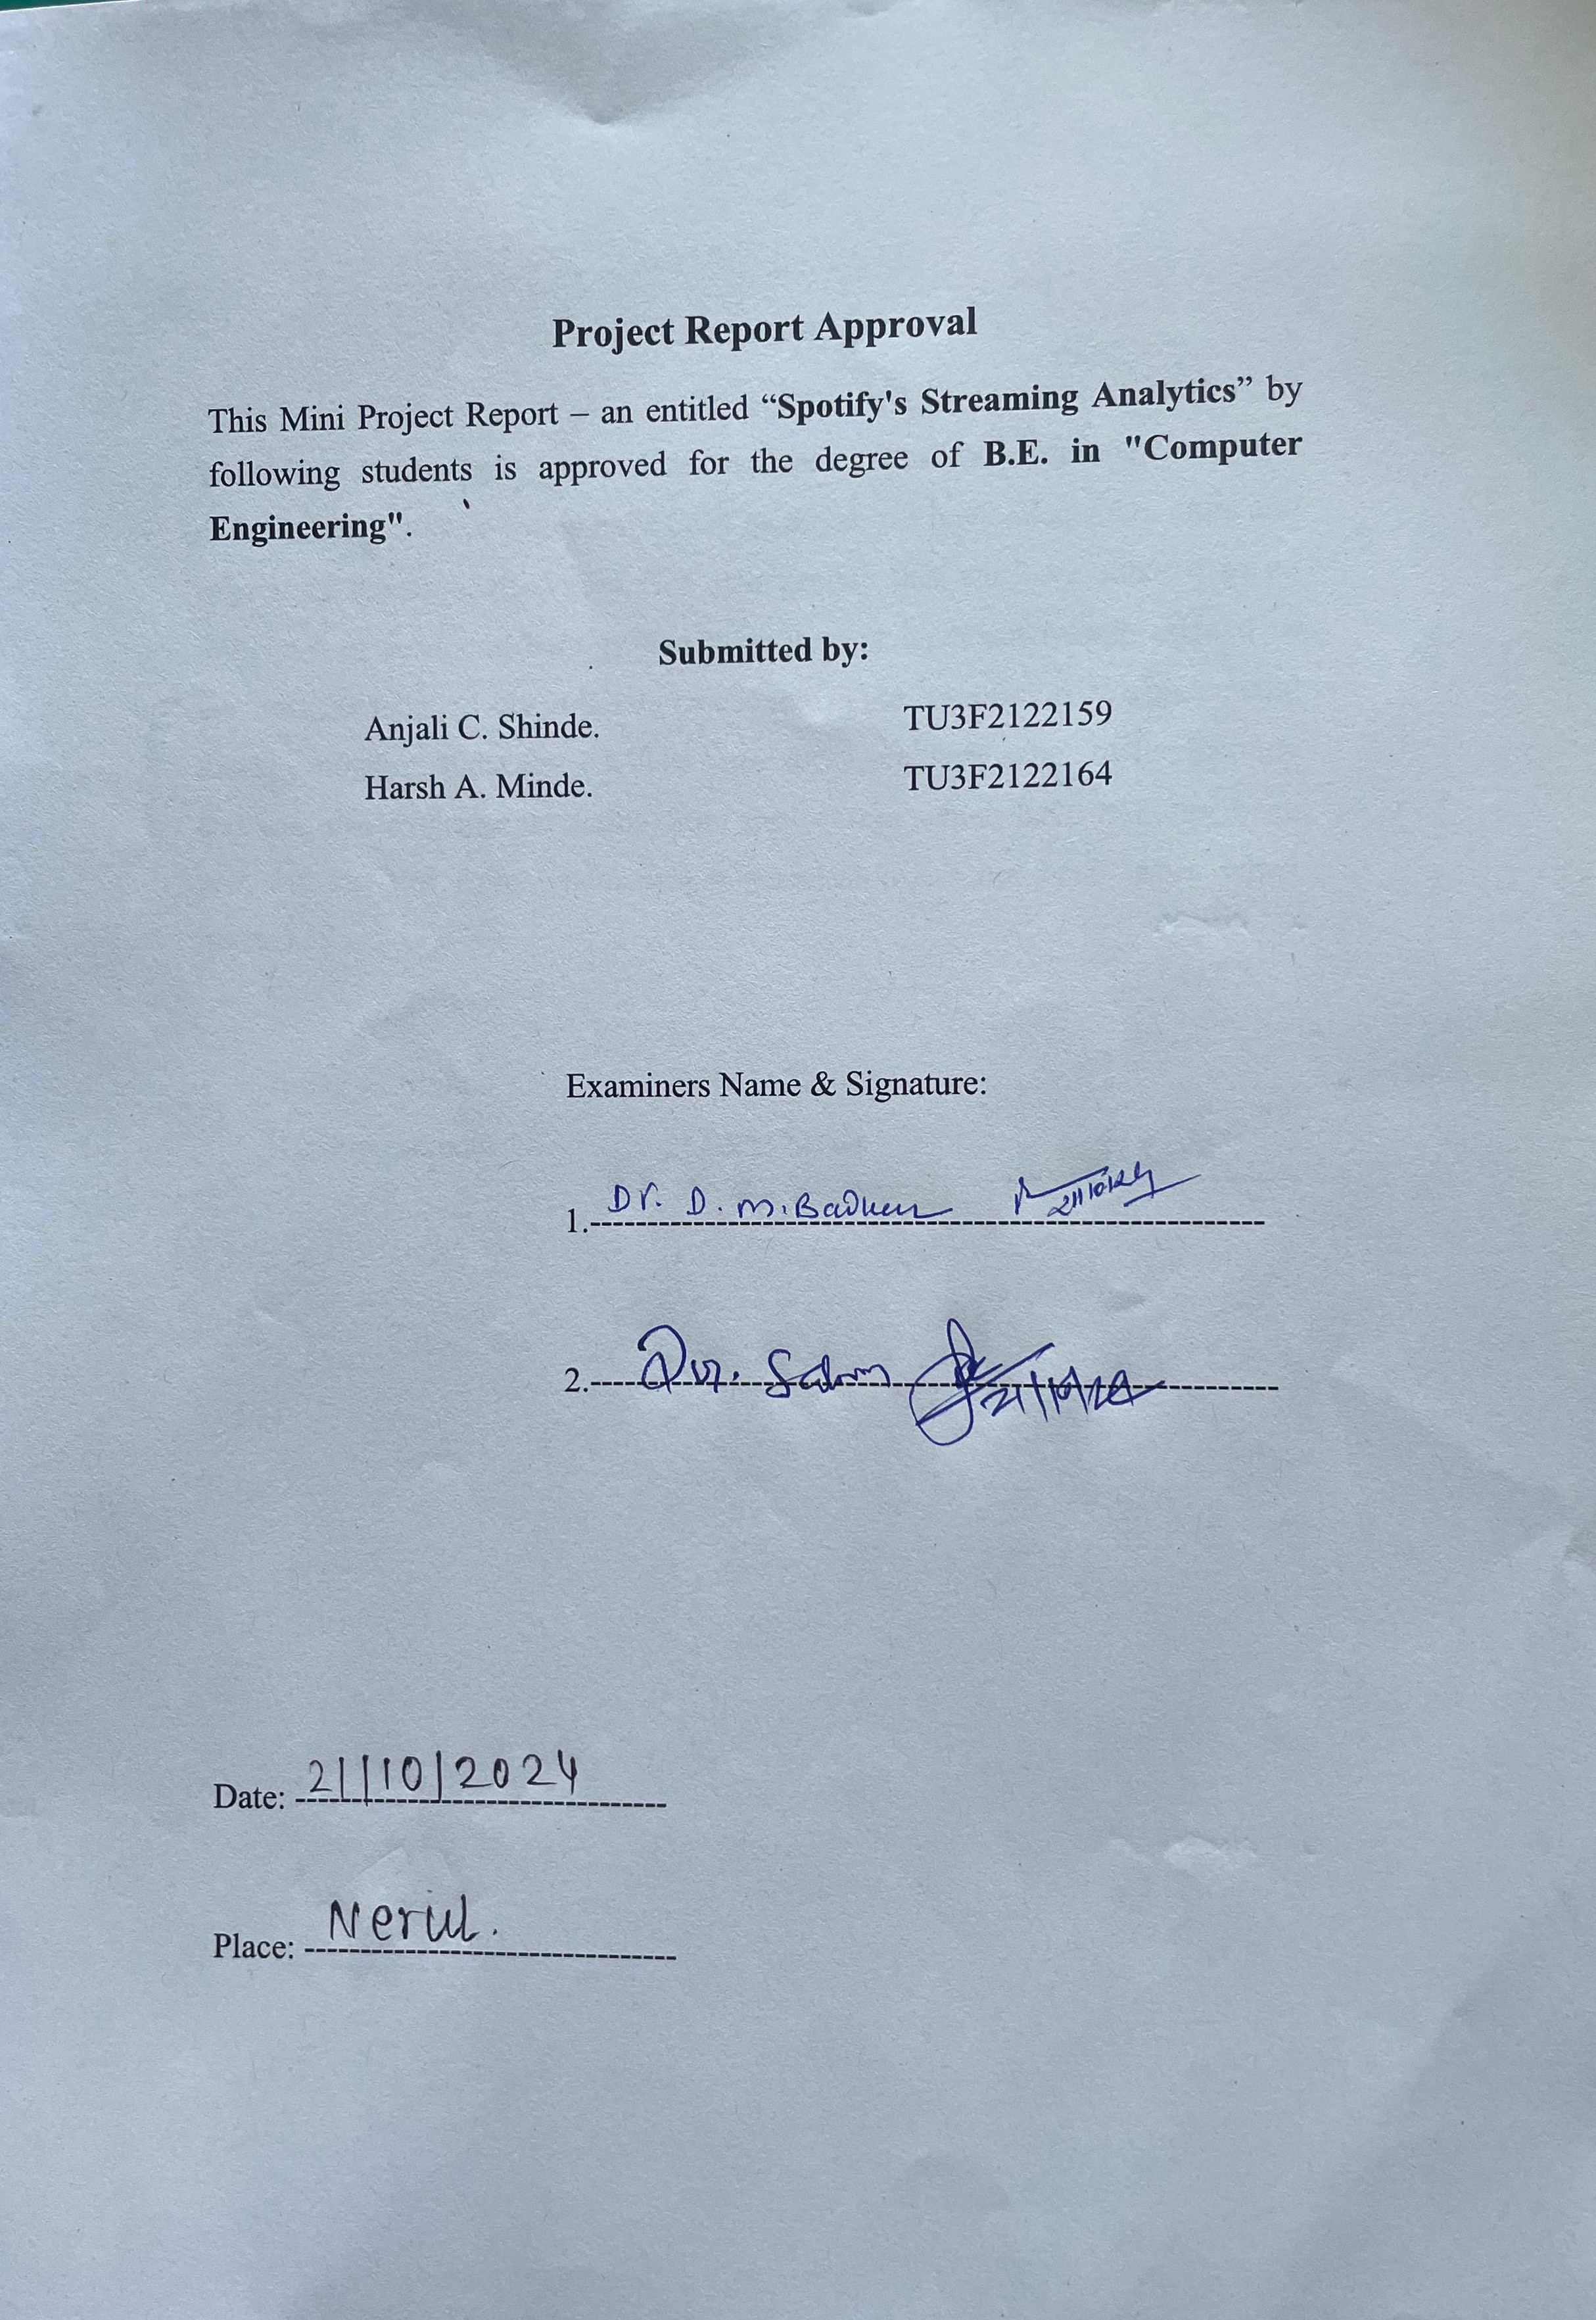 Project Report Approval
This Mini Project Report – an entitled “Spotify's Streaming Analytics” by
following students is approved for the degree of B.E. in "Computer
Engineering".
Submitted by:
Anjali C. Shinde. TU3F2122159
Harsh A. Minde. TU3F2122164
Examiners Name & Signature:
1. Dr. D. M. 21/10/24
2. 21/10/24
Date: 21/10/2024
Place: Nerul.